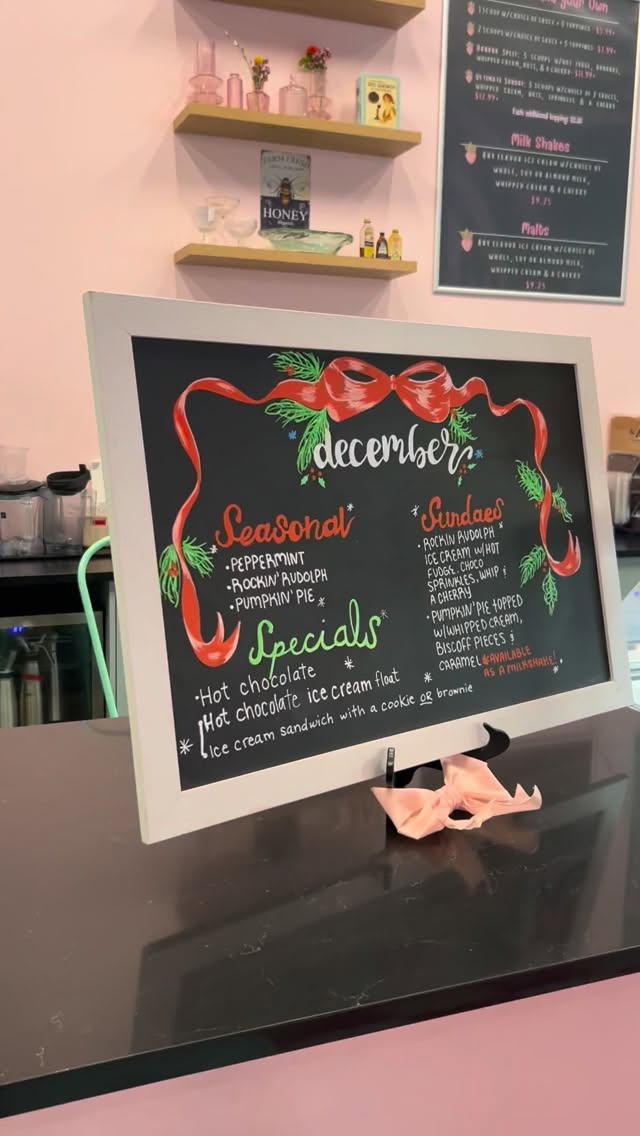 Your Own
1 SCOOP W/CHOICE OF SAUCE + 2 TOPPINGS
2 SCOOPS W/CHOICE OF SAUCE + 3 TOPPINGS
BANANA SPLIT: 3 SCOOPS W/HOT FUDGE, BANANAS,
WHIPPED CREAM, NUTS, & A CHERRY
ULTIMATE SUNDAE: 3 SCOOPS W/CHOICE OF 2 SAUCES,
WHIPPED CREAM, NUTS, SPRINKLES & A CHERRY
Each additional topping:
Milk Shakes
ANY FLAVOR ICE CREAM W/CHOICE OF
WHOLE, SOY OR ALMOND MILK,
WHIPPED CREAM & A CHERRY
$9.25
Malts
ANY FLAVOR ICE CREAM W/CHOICE OF
WHOLE, SOY OR ALMOND MILK,
WHIPPED CREAM & A CHERRY
$9.25
FARM FRESH
HONEY
december
Seasonal
•PEPPERMINT
•ROCKIN' RUDOLPH
•PUMPKIN' PIE
Sundaes
•ROCKIN RUDOLPH
ICE CREAM W/HOT
FUDGE, CHOCO
SPRINKLES, WHIP &
A CHERRY
•PUMPKIN' PIE TOPPED
W/WHIPPED CREAM,
BISCOFF PIECES &
CARAMEL *AVAILABLE
AS A MILKSHAKE!
Specials
•Hot chocolate
Hot chocolate ice cream float
* Ice cream sandwich with a cookie OR brownie